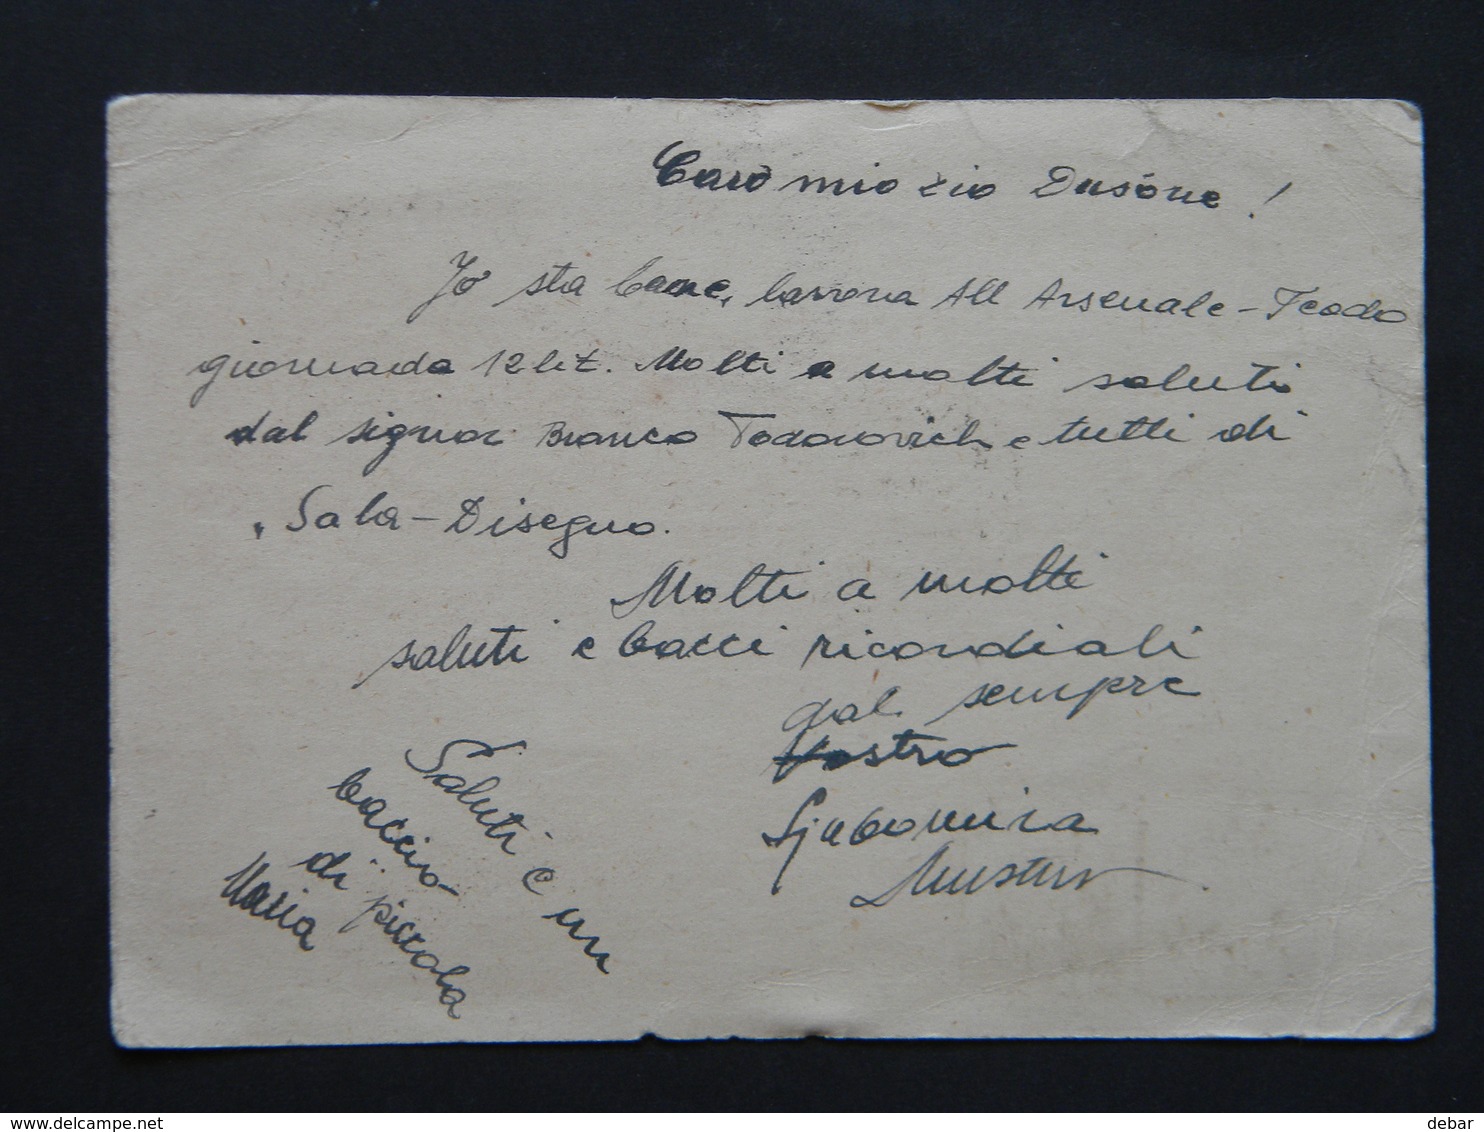 Caro mio zio Dusóne!
Jo sta bene, lavvora All Arsenale - Teodo
giornada 12 lit. Molti a molti saluti
dal signor Branco Todorovich e tutti di
"Sala - Disegno.
Molti a molti
saluti e bacci ricordiali
dal sempre
Vostro
Ljubomira
Saluti e un
baccio
di piccola
Maria
delcampe.net
debar